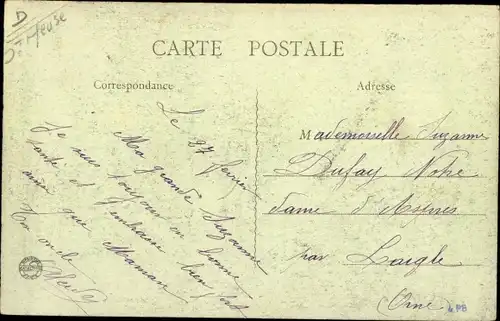 D
Meuse
CARTE POSTALE
Correspondance
Adresse
Le 27 février
Ma grande Suzanne
Je suis toujours en bonne
santé et t'embrasse bien fort
ainsi que Maman
Ton oncle
Mademoiselle Suzanne
Dufay Notre
dame d'Aspres
par Laigle
(Orne)
PB